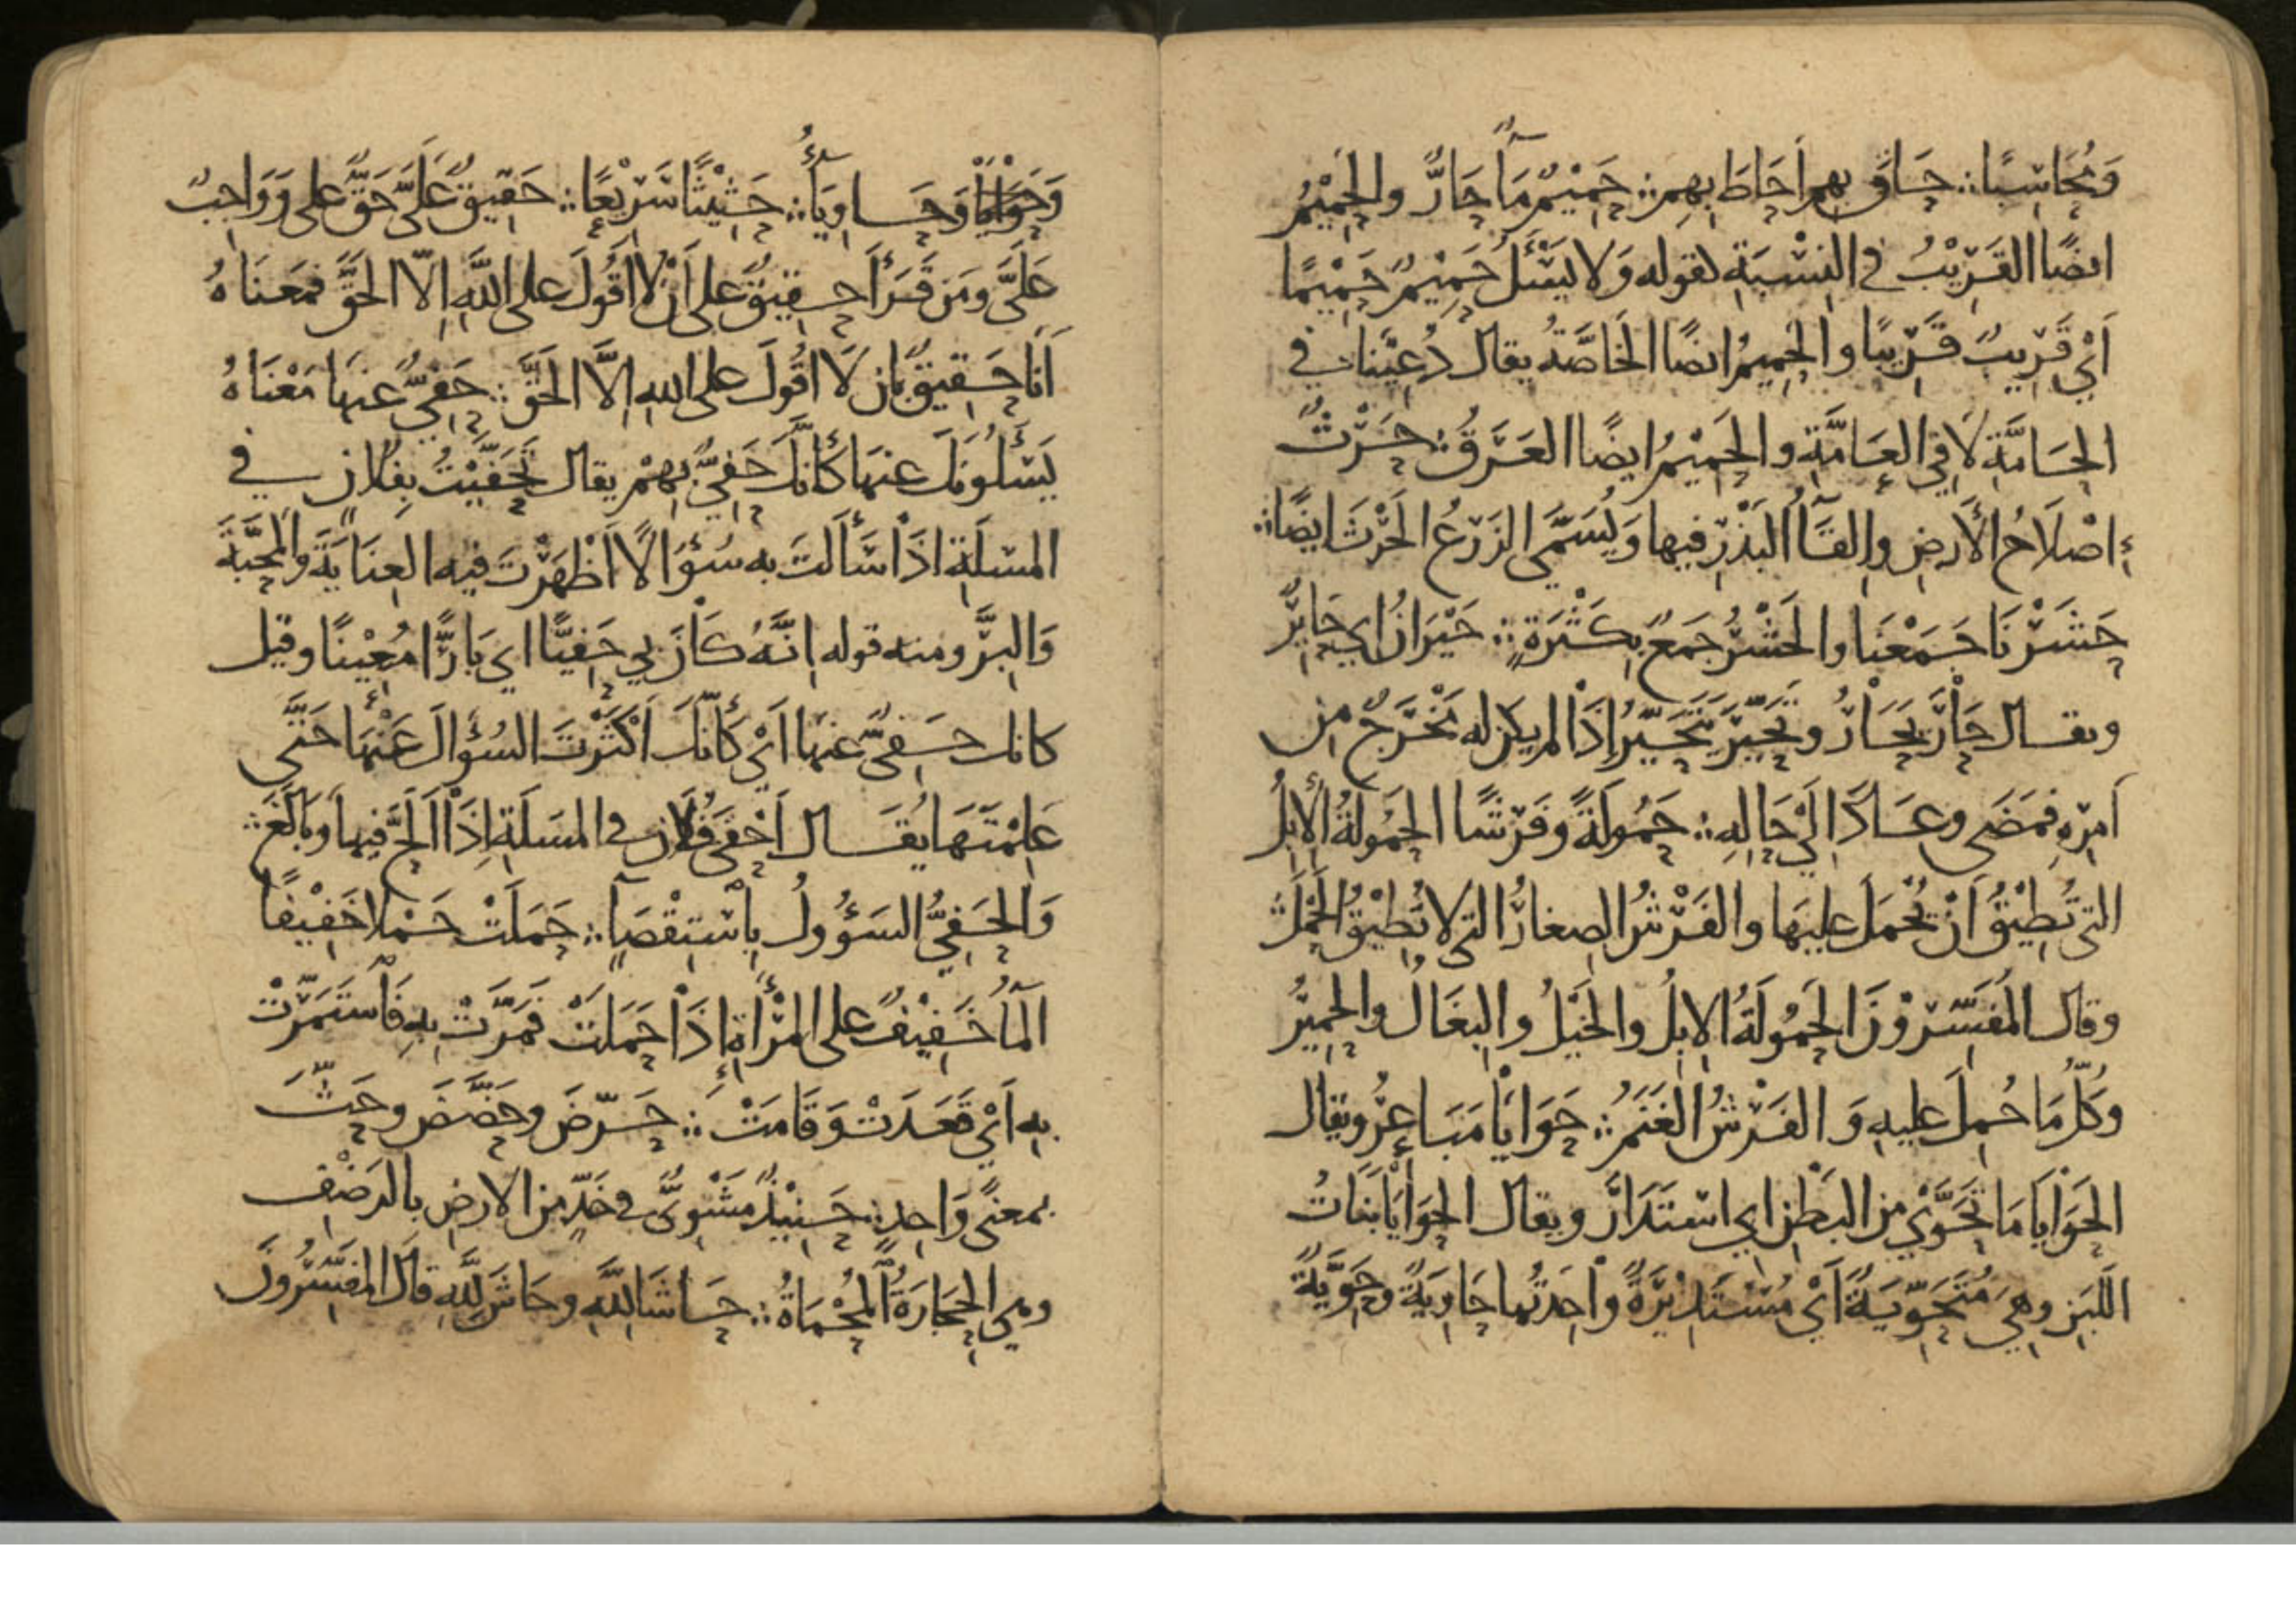 وَمُحَاسِبًا ∴ حَاقَ بهم أَحَاطَ بِهِم ∴ حَمِيْمٌ مَآءٌ حَارٌّ والحَمِيْمُ
ايضًا القَرِيْبُ في النِسْبَةِ لقوله وَلا يَسْئَلُ حَمِيْمٌ حَمِيْمًا
اَيْ قَرِيبٌ قَرِيْبًا والحَمِيمُ ايضًا الخَاصَّةُ يقال دُعِيْنَا في
الحَامَّةِ لَا فِي العَامَّةِ والحَمِيْمُ ايضًا العَرَقُ ∴ حَرْثٌ
إِصْلَاحُ الأَرضِ وإِلقَآءُ البَذْرِ فيها وَيُسَمَّى الزَرْعُ الحَرْثَ ايضًا ∴
حَشَرْنَا جَمَعْنَا والحَشْرُ جَمعٌ بِكَثْرَةٍ ∴ حَيْرَانُ اي حَايِرٌ
ويقال حَارَ يَحَارُ وتَحَيَّرَ يَتَحَيَّرُ إِذَا لم يكن له مَخْرَجٌ مِن
اَمْرِهِ فمَضَى وعَادَ اِلَى حَالِهِ ∴ حَمُولَةً وفَرْشًا الحَمُولَةُ الأِبِلُ
التي تُطِيْقُ اَنْ تُحْمَلَ عليهَا والفَرْشُ الصِغارُ التي لا تُطِيْقُ الحَمْلَ ∴
وقال المُفَسِّرُوْنَ الحَمُولَةُ الإِبِلُ والخَيْلُ والبِغَالُ والحَمِيْرُ
وَكُلُّ مَا حُمِلَ عليهِ وَالفَرْشُ الغَنَمُ ∴ حَوَايَا مَبَاعِرُ ويقال
الحَوَايَا مَا تَحَوَّيْ من البَطْنِ اي اسْتَدَارَ ويقال الحَوَايَا بَنَاتُ
اللَبَنِ وهِيَ مُتَحَوِّيَةٌ اَيْ مُسْتَدِيْرَةٌ وَاحِدَتُها حَاوِيَةٌ وحَوِيَّةٌ
وَحَاوِيَآءُ ∴ حَثِيْثًا سَرِيْعًا ∴ حَقِيقٌ عَلَيَّ حَقٌّ على وَوَاجِبٌ
عَلَيَّ ومَن قَرَأَ حَقِيقٌ على أَنْ لَا اَقُولَ على اللَّهِ اِلّا الحَقَّ فمَعنَاهُ
اَنَا حَقِيقٌ بان لَا اَقُولَ على اللهِ اِلَّا الحَقَّ ∴ حَفِيٌّ عنهَا مَعْنَاهُ
يَسْئَلُونَكَ عنهَا كأَنَّكَ حَفِيٌّ بِهِمْ يقال تَحَفَّيْتُ بِفُلَانٍ في
المسئَلَةِ اذَا سَأَلتَ به سُؤَالًا اَظْهَرْتَ فيه العِنَايَةَ والمَحَبَّةَ
وَالبِرَّ ومنه قوله اِنَّهُ كَانَ بِي حَفِيًّا اي بَارًّا مُعِيْنًا وقيل
كانك حَفِيٌّ عنهَا اَيْ كَأَنَّكَ اَكْثَرْتَ السُؤَالَ عَنْهَا حَتَّى
عَلِمْتَهَا يُقَال اَحْفَى فُلَانٌ في المَسئَلَةِ اِذَا اَلَحَّ فيها وَبَالَغَ ∴
وَالحَفِيُّ السَؤُولُ بِاسْتِقْصَآءٍ ∴ حَمَلَتْ حَمْلا خَفِيْفًا
المآءُ خَفِيْفٌ على المَرْأَةِ إِذَا حَمَلَتْ فَمَرَّتْ بِهِ فَاسْتَمَرَّتْ
به اَيْ قَعَدَتْ وَقَامَتْ ∴ حَرّضَ وحَضَّضَ وحَثَّ
بمعنًى وَاحِدٍ ∴ حَنِيْذٌ مَشْوِيٌّ في خَدٍّ من الارضِ بالرَضْفِ
وهي الحِجَارَةُ المُحْمَاةُ ∴ حَاشَا للَّهِ وحَاشَ لِلَّهِ قَالَ المُفَسِّرُونَ